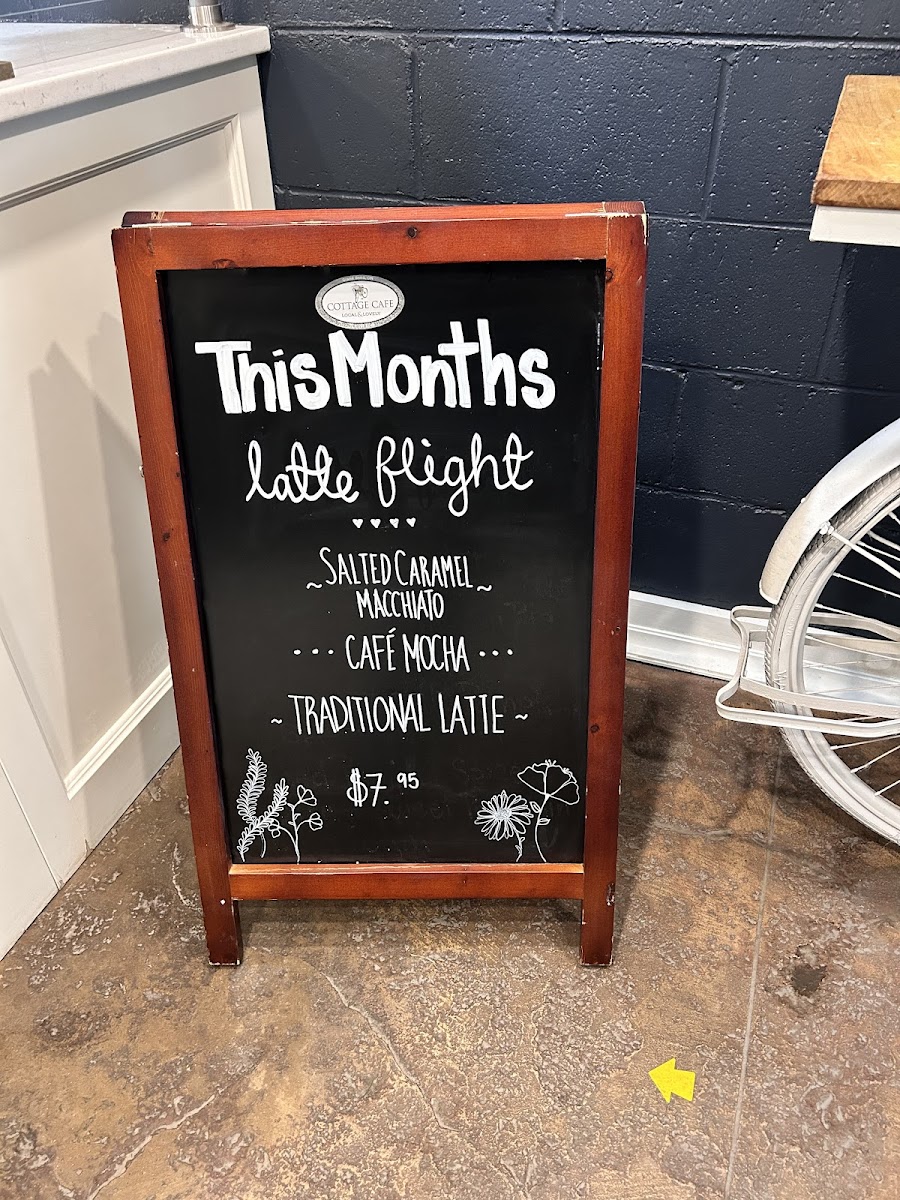 COTTAGE CAFE
LOCAL & LOVELY
This Months
latte flight
~ SALTED CARAMEL ~
MACCHIATO
··· CAFÉ MOCHA ···
~ TRADITIONAL LATTE ~
$7.95